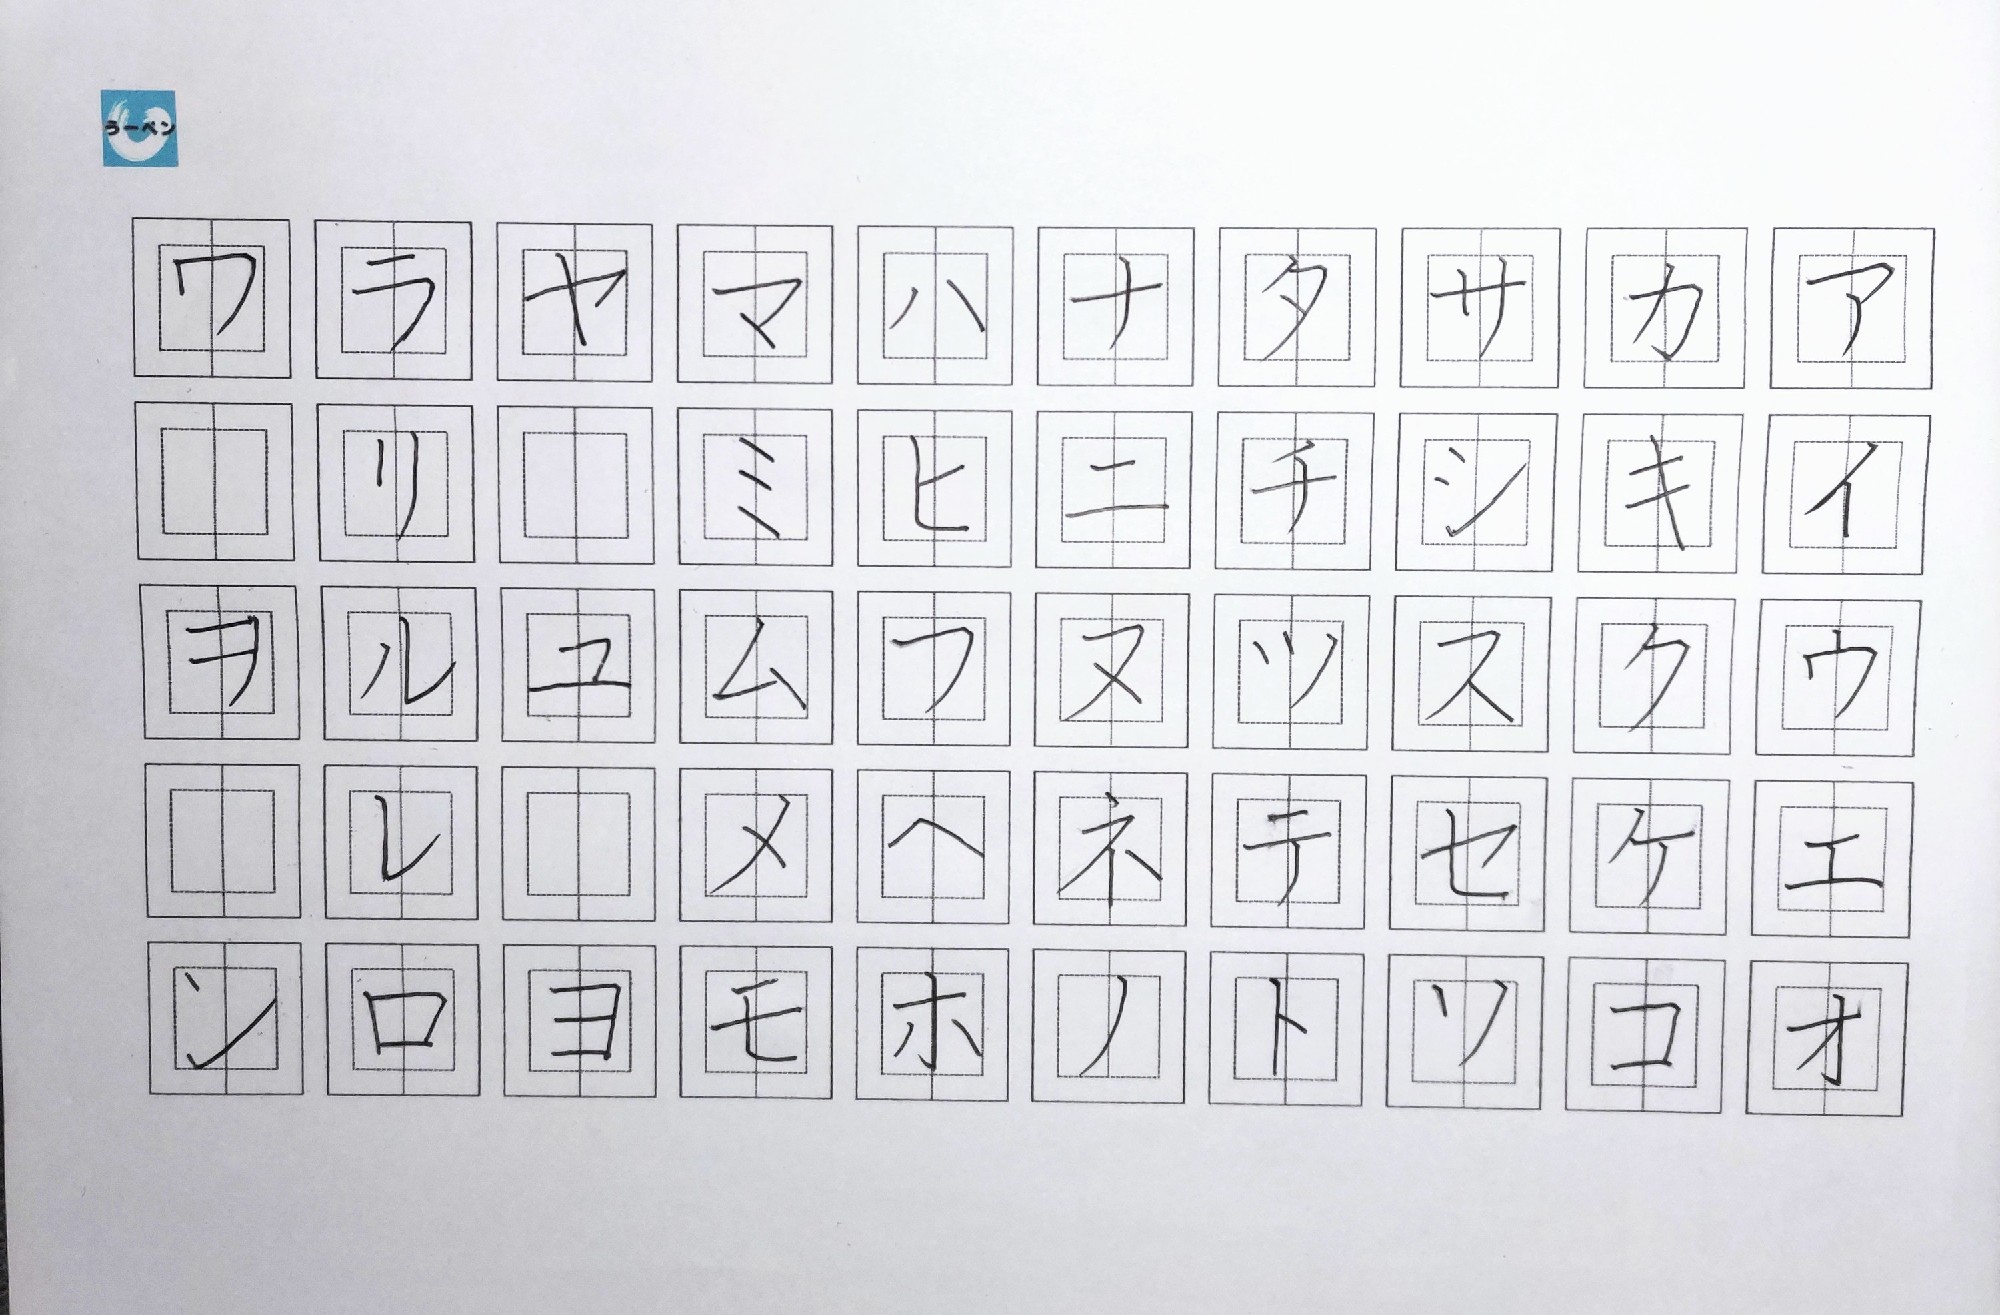 うーペン
アイウエオ
カキクケコ
サシスセソ
タチツテト
ナニヌネノ
ハヒフヘホ
マミムメモ
ヤユヨ
ラリルレロ
ワヲン